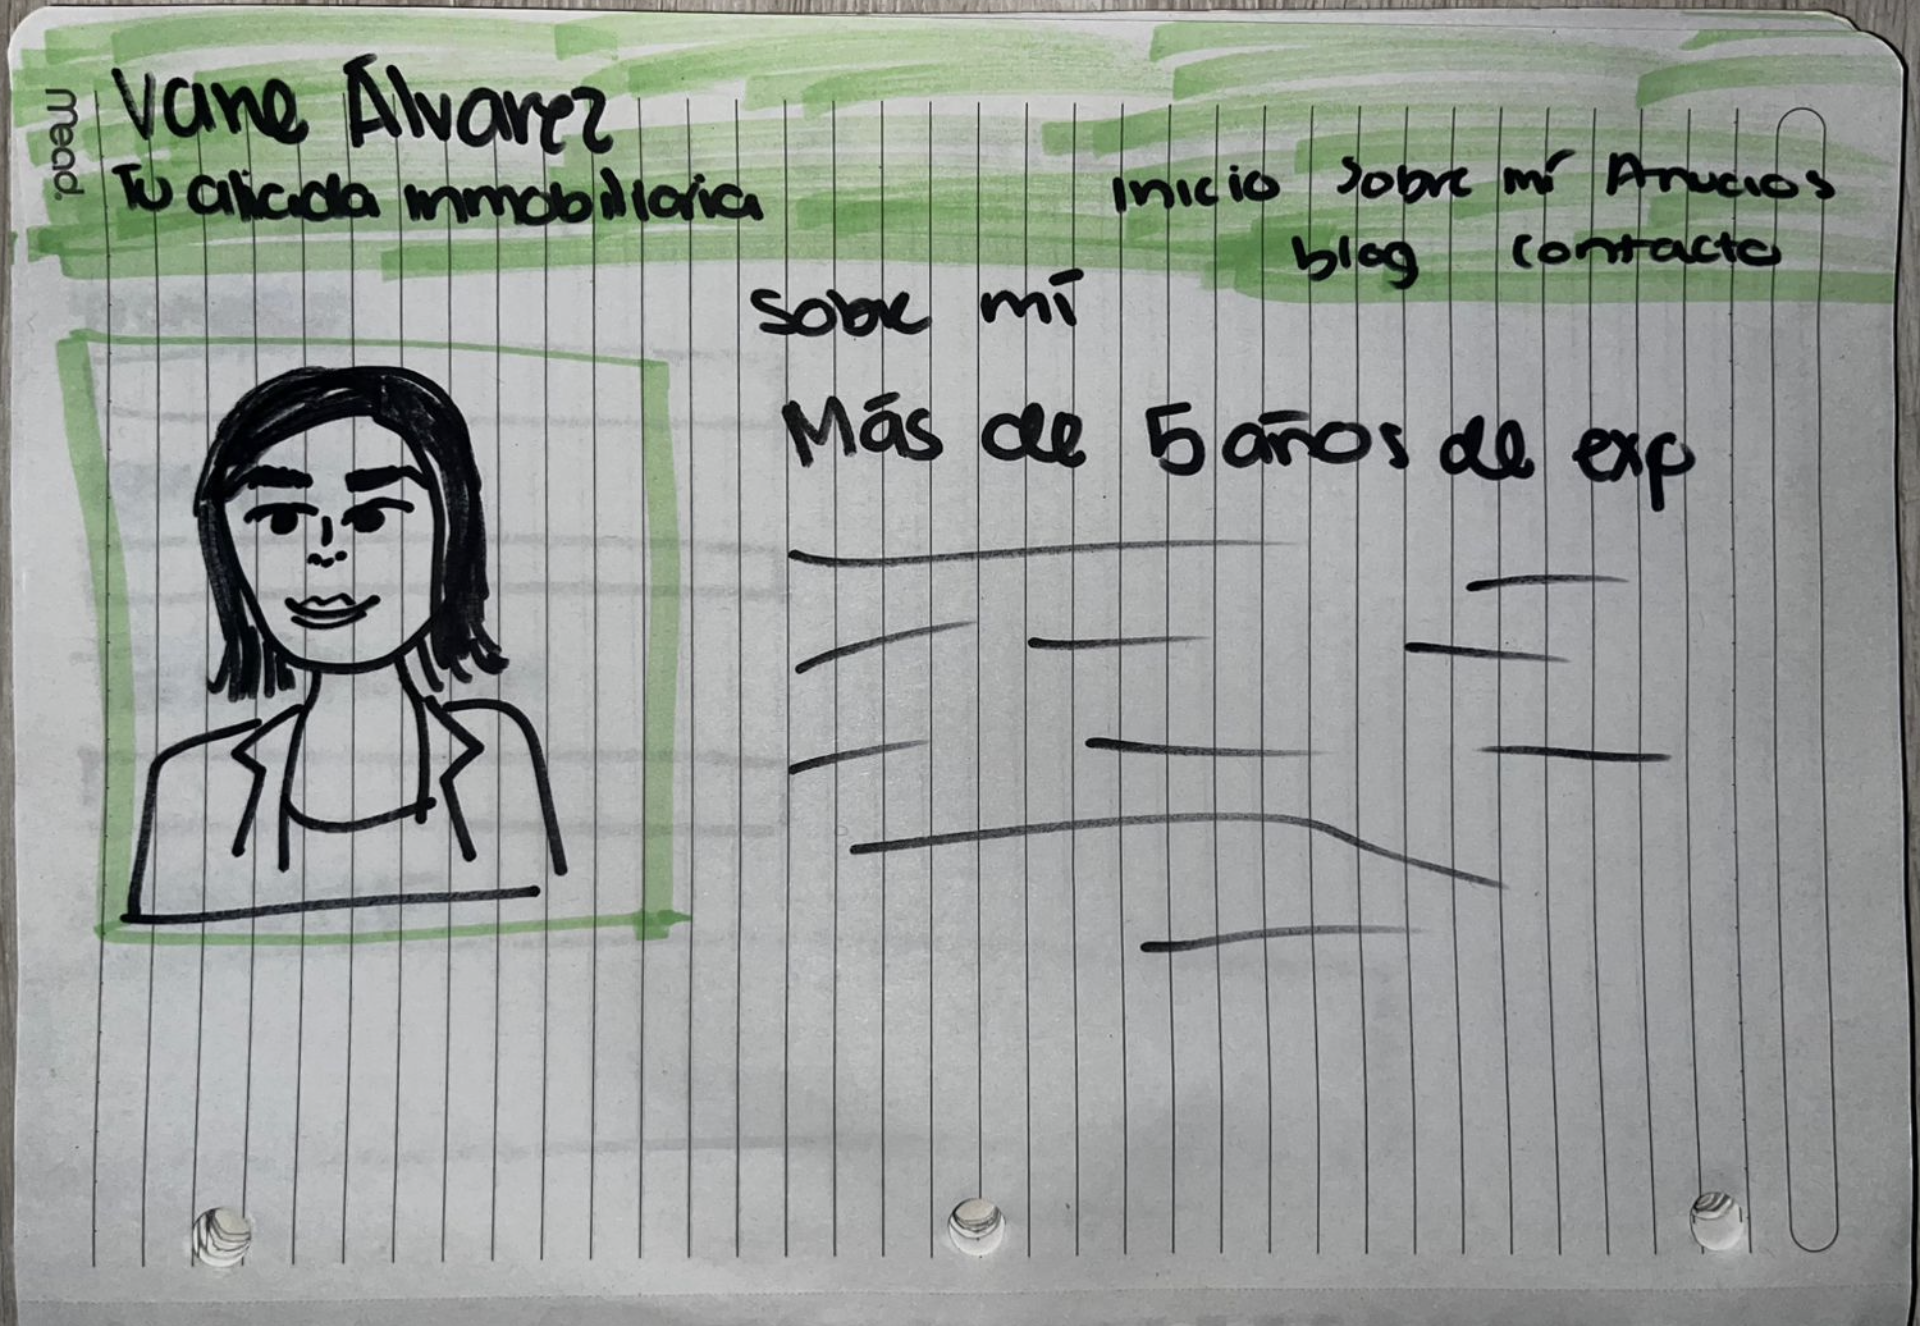 mead.
Vane Álvarez
Tu aliada inmobiliaria
Inicio Sobre mí Anucios
blog contacto
Sobre mí
Más de 5 años de exp